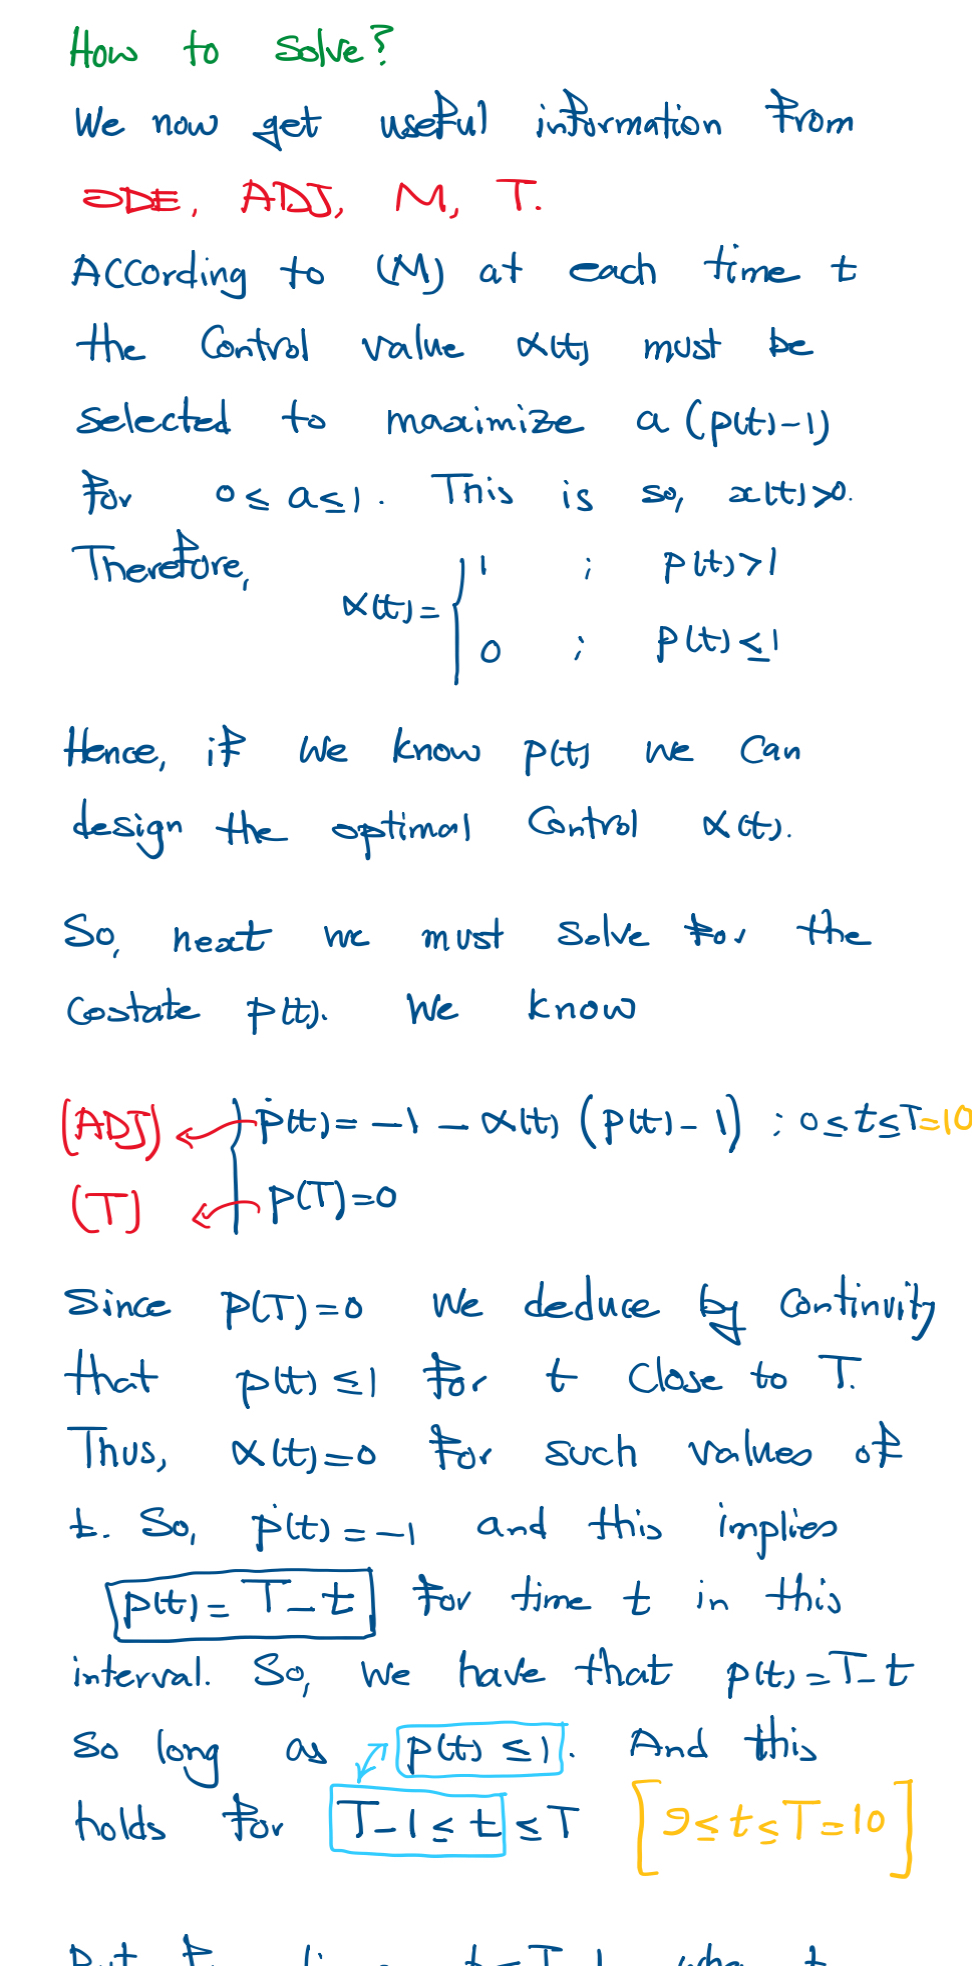 How to solve?
We now get useful information from
ODE, ADJ, M, T.
According to (M) at each time t
the control value α(t) must be
selected to maximize a (p(t)-1)
for 0 ≤ a ≤ 1. This is so, x(t)>0.
Therefore,
α(t) = { 1 ; p(t)>1
0 ; p(t) ≤ 1
Hence, if we know p(t) we can
design the optimal control α(t).
So, next we must solve for the
costate p(t). We know
(ADJ) ṗ(t) = -1 - α(t) (p(t) - 1) ; 0 ≤ t ≤ T = 10
(T) p(T) = 0
Since p(T) = 0 we deduce by continuity
that p(t) ≤ 1 for t close to T.
Thus, α(t) = 0 for such values of
t. So, ṗ(t) = -1 and this implies
p(t) = T - t for time t in this
interval. So, we have that p(t) = T - t
so long as p(t) ≤ 1. And this
holds for T - 1 ≤ t ≤ T [9 ≤ t ≤ T = 10]